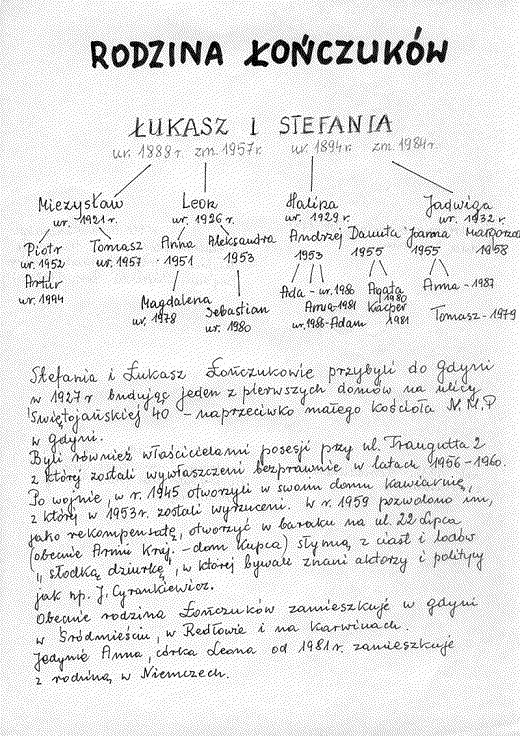 RODZINA ŁOŃCZUKÓW
ŁUKASZ I STEFANIA
ur. 1888 r. zm. 1957r. ur. 1894r. zm. 1984r.
Mieczysław Leon Halina Jadwiga
ur. 1921 r. ur. 1926 r. ur. 1929 r. ur. 1932 r.
Piotr Tomasz Anna Aleksandra Andrzej Danuta Joanna Małgorzata
ur. 1952 ur. 1957 1951 1953 1953 1955 1955 1958
Artur
ur. 1994
Magdalena Sebastian Ada - ur. 1980 Agata Anna - 1987
ur. 1978 ur. 1980 Anna - 1981 1980
ur. 1986 - Adam Kacper 1981 Tomasz - 1979
Stefania i Łukasz Łończukowie przybyli do Gdyni
w 1927 r budując jeden z pierwszych domów na ulicy
Świętojańskiej 40 - naprzeciwko małego kościoła N.M.P
w Gdyni.
Byli również właścicielami posesji przy ul. Traugutta 2
z której zostali wywłaszczeni bezprawnie w latach 1956 - 1960.
Po wojnie, w r. 1945 otworzyli w swoim domu kawiarnię,
z której w 1953r. zostali wyrzuceni. W r. 1959 pozwolono im,
jako rekompensatę, otworzyć w baraku na ul. 22 Lipca
(obecnie Armii Kraj. - dom Kupca) słynną z ciast i lodów
"słodką dziurkę", w której bywali znani aktorzy i politycy
jak np. J. Cyrankiewicz.
Obecnie rodzina Łończuków zamieszkuje w Gdyni
w Śródmieściu, w Redłowie i na Karwinach.
Jedynie Anna, córka Leona od 1981 r. zamieszkuje
z rodziną w Niemczech.